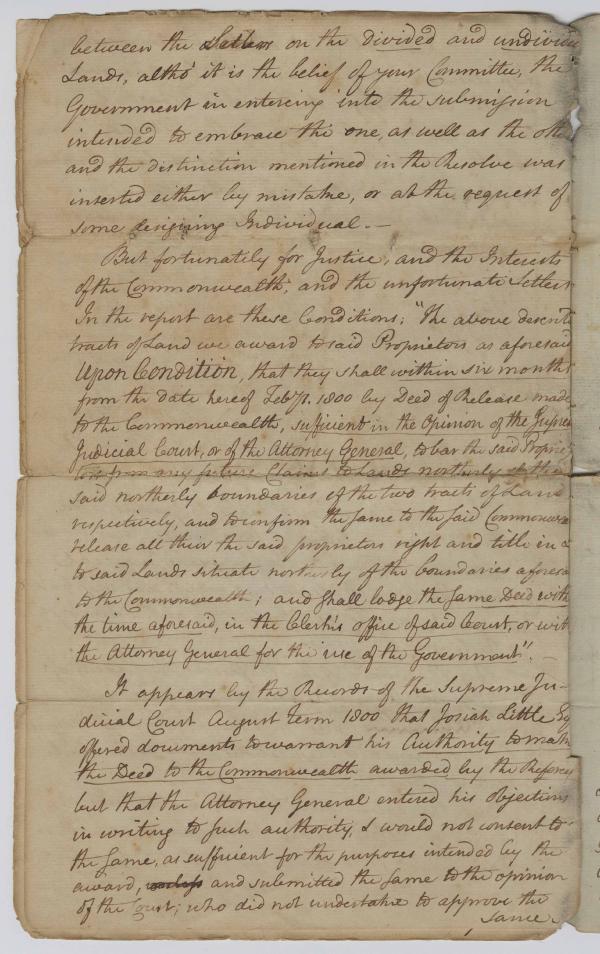 between the Setlers on the divided and undivide
Lands, altho' it is the belief of your Committee, the
Government in entering into the submission
intended to embrace the one, as well as the oth
and the distinction mentioned in the Resolve was
inserted either by mistake, or at the request of
some designing Individual. —
But fortunately for Justice, and the Interests
of the Commonwealth, and the unfortunate Setlers
In the report are these Conditions; "The above describ
tracts of Land we award to said Proprietors as aforesaid
Upon Condition, that they shall within six months
from the date hereof Feby. 1800 by Deed of Release made
to the Commonwealth, sufficient in the Opinion of the Supre
Judicial Court, or of the Attorney General, to bar the said Proprie
tors from any future Claims to Lands northerly of the
said northerly boundaries of the two tracts of Land
respectively, and to confirm the same to the said Commonwea
release all their the said proprietors right and title in &
to said Lands situate northerly of the boundaries aforesa
to the Commonwealth; and shall lodge the same Deed with
the time aforesaid, in the Clerk's office of said Court, or wit
the Attorney General for the use of the Government". —
It appears by the Records of the Supreme Ju-
dicial Court August term 1800 that Josiah Little Esq
offered documents to warrant his Authority to make
the Deed to the Commonwealth awarded by the Referees
but that the Attorney General entered his objections
in writing to such authority, & would not consent to
the same, as sufficient for the purposes intended by the
award, and submitted the same to the opinion
of the Court; who did not undertake to approve the
same.